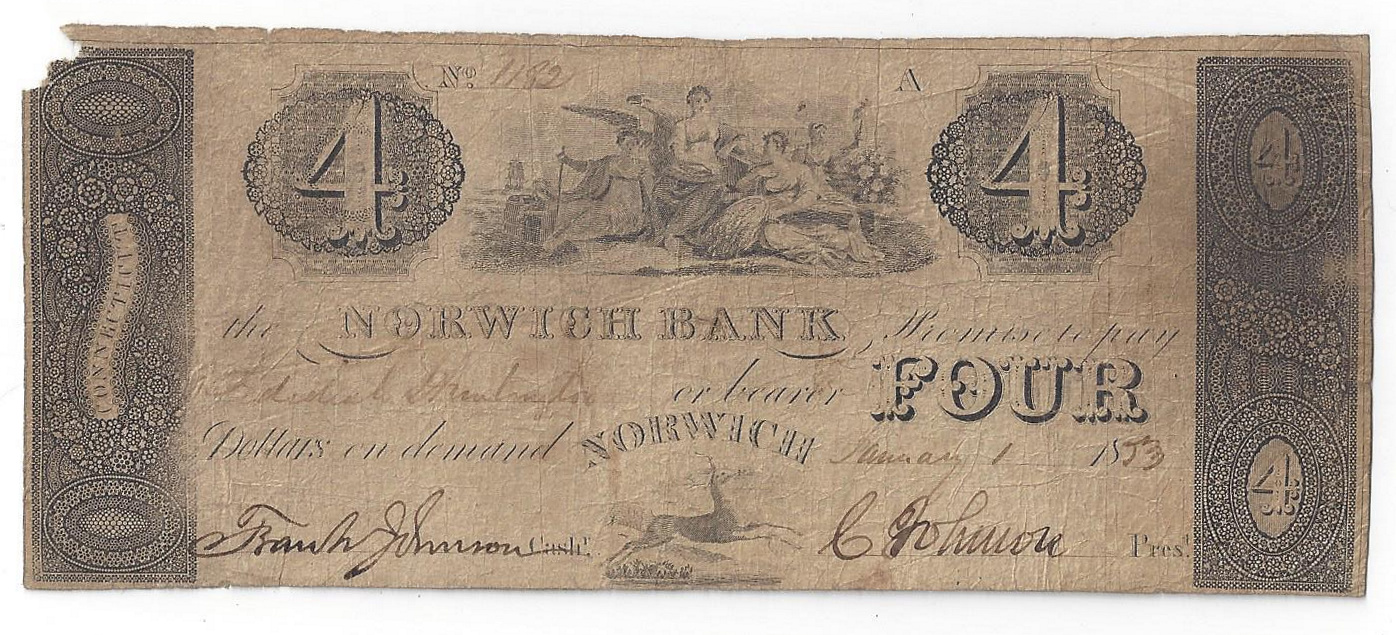 No. 1182 A
4 4 4
CONNECTICUT
the NORWICH BANK Promise to pay
or bearer FOUR
Dollars on demand NORWICH January 1 1853
4
Frank Johnson Cashr. C Johnson Prest.